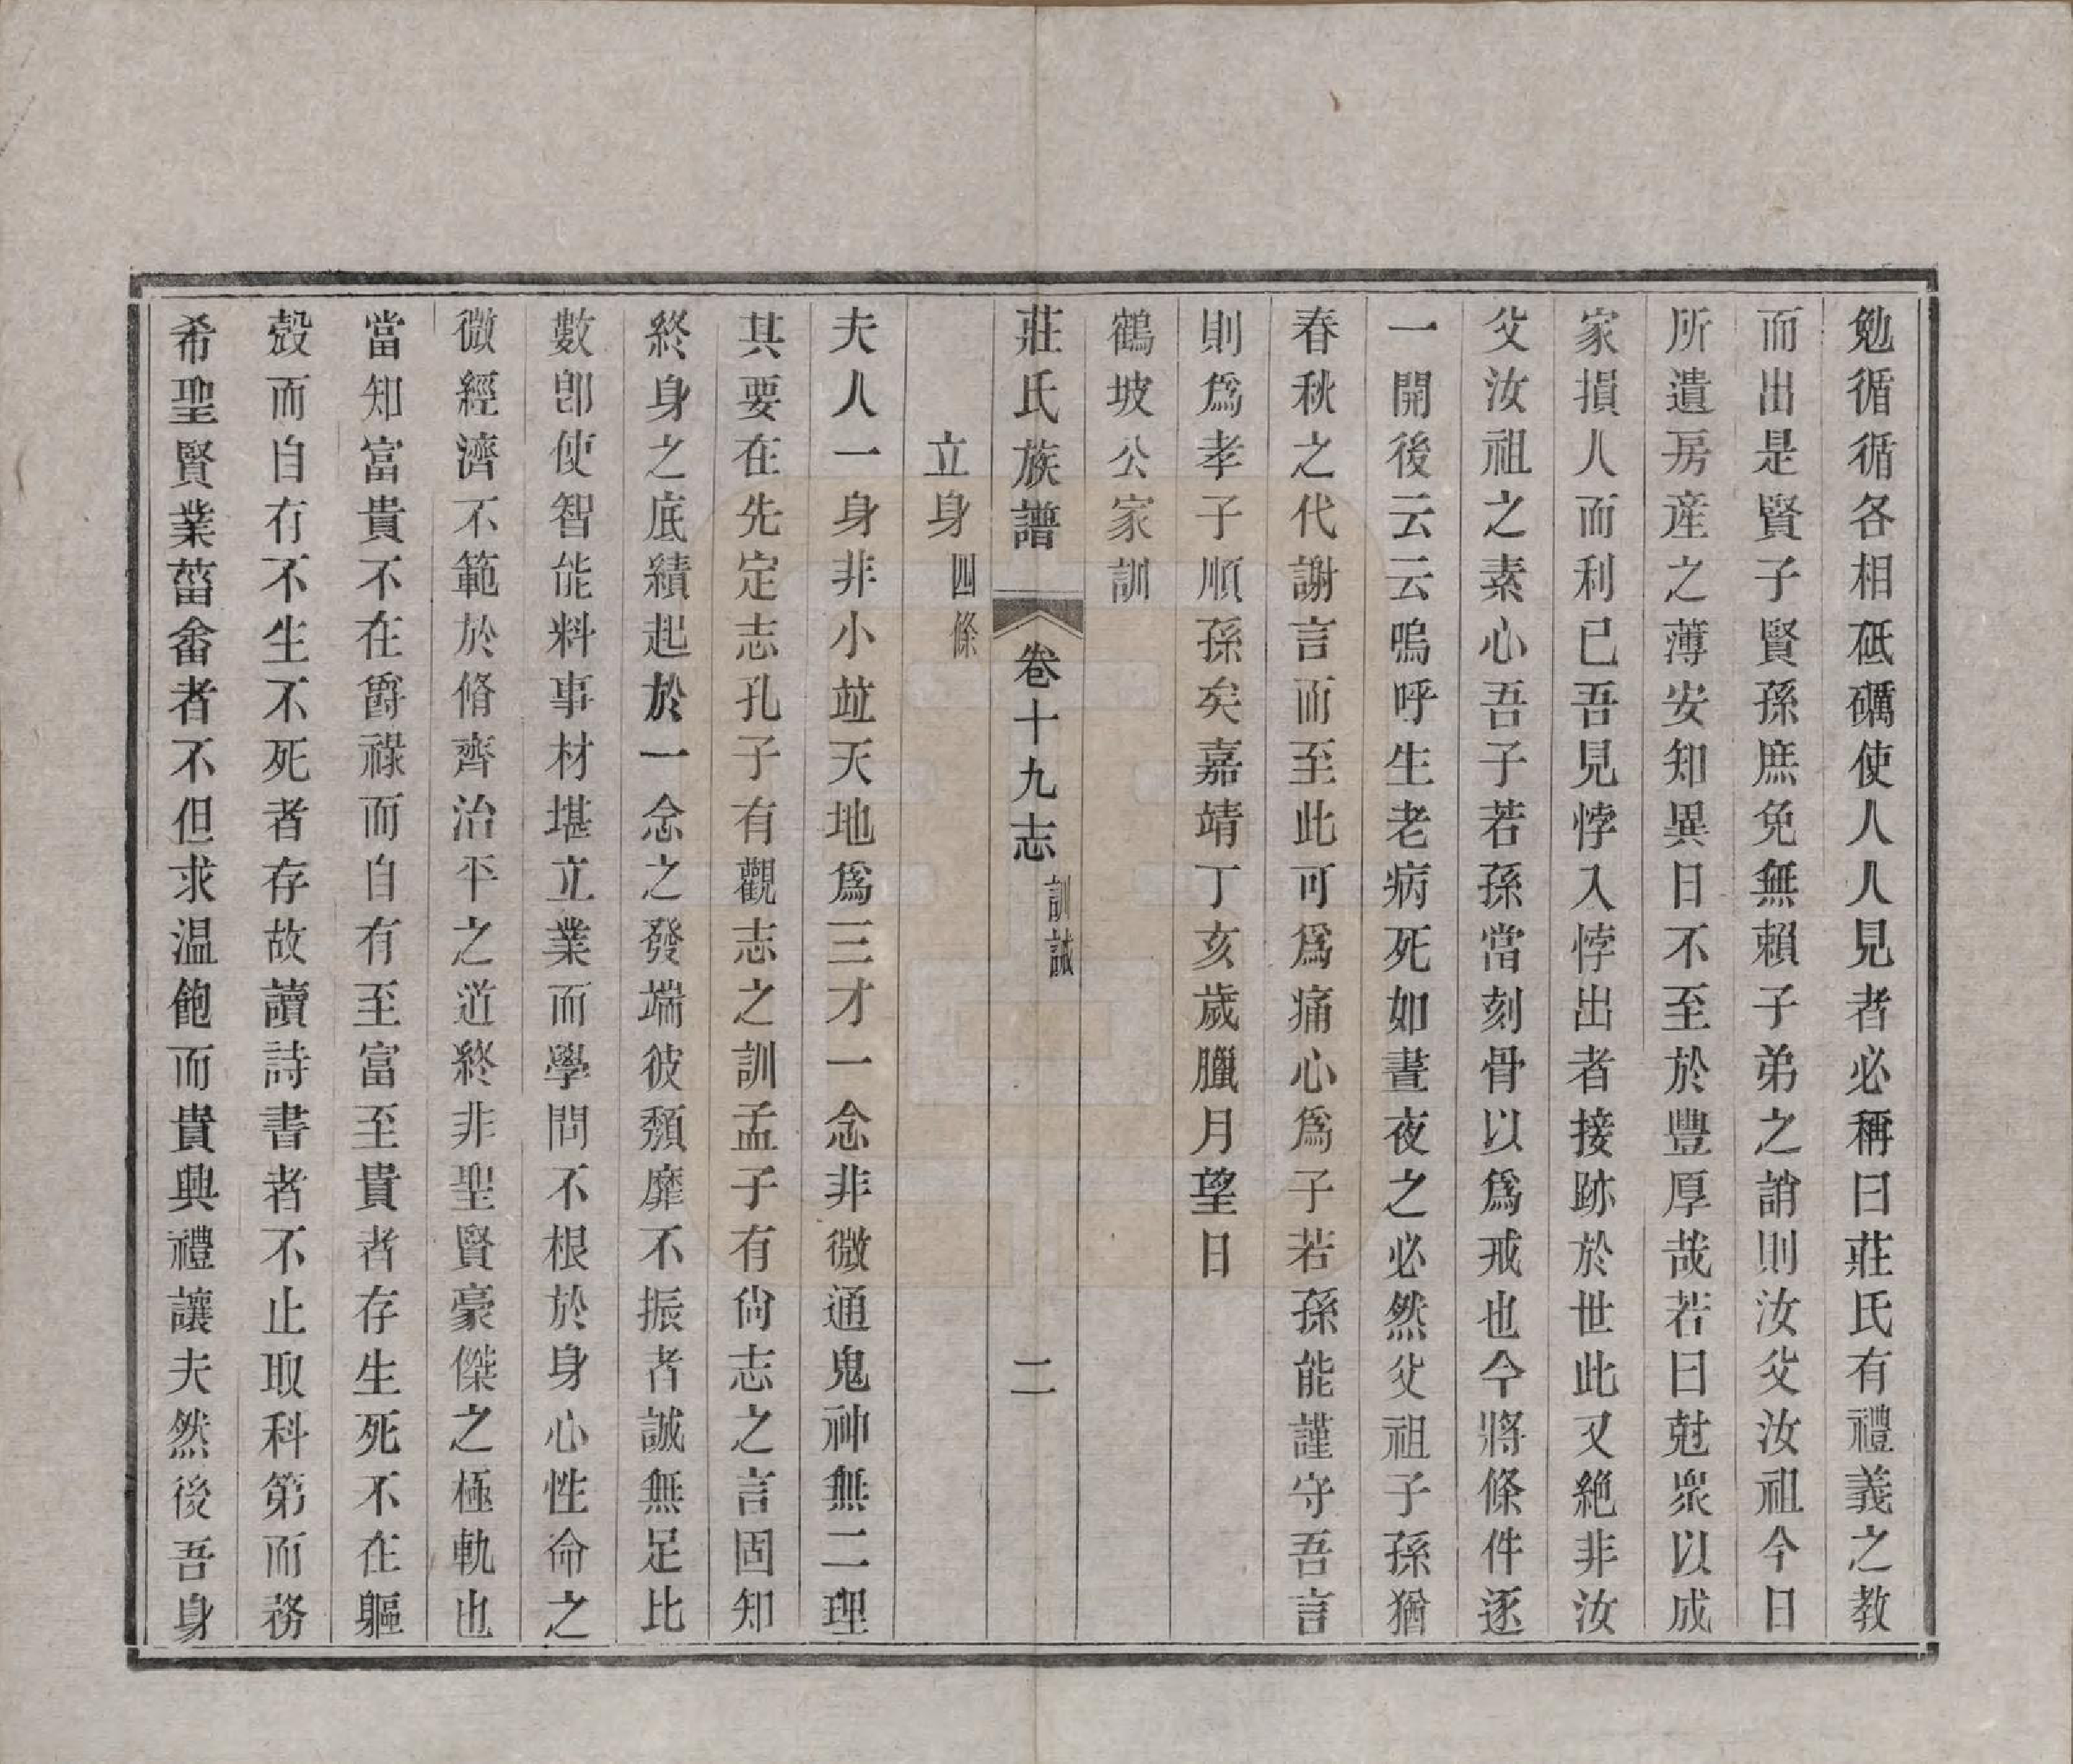 勉循循各相砥礪使人人見者必稱曰莊氏有禮義之教
而出是賢子賢孫庶免無賴子弟之誚則汝父汝祖今日
所遺房產之薄安知異日不至於豐厚哉若曰尅衆以成
家損人而利已吾見悖入悖出者接跡於世此又絶非汝
父汝祖之素心吾子若孫當刻骨以爲戒也今將條件逐
一開後云云嗚呼生老病死如晝夜之必然父祖子孫猶
春秋之代謝言而至此可爲痛心爲子若孫能謹守吾言
則爲孝子順孫矣嘉靖丁亥歲臘月望日
鶴坡公家訓
莊氏族譜 卷十九志 訓誡 二
立身 四條
夫人一身非小竝天地爲三才一念非微通鬼神無二理
其要在先定志孔子有觀志之訓孟子有尙志之言固知
終身之底績起於一念之發端彼頹靡不振者誠無足比
數卽使智能料事材堪立業而學問不根於身心性命之
微經濟不範於脩齊治平之道終非聖賢豪傑之極軌也
當知富貴不在爵祿而自有至富至貴者存生死不在軀
殼而自有不生不死者存故讀詩書者不止取科第而務
希聖賢業菑畬者不但求温飽而貴興禮讓夫然後吾身